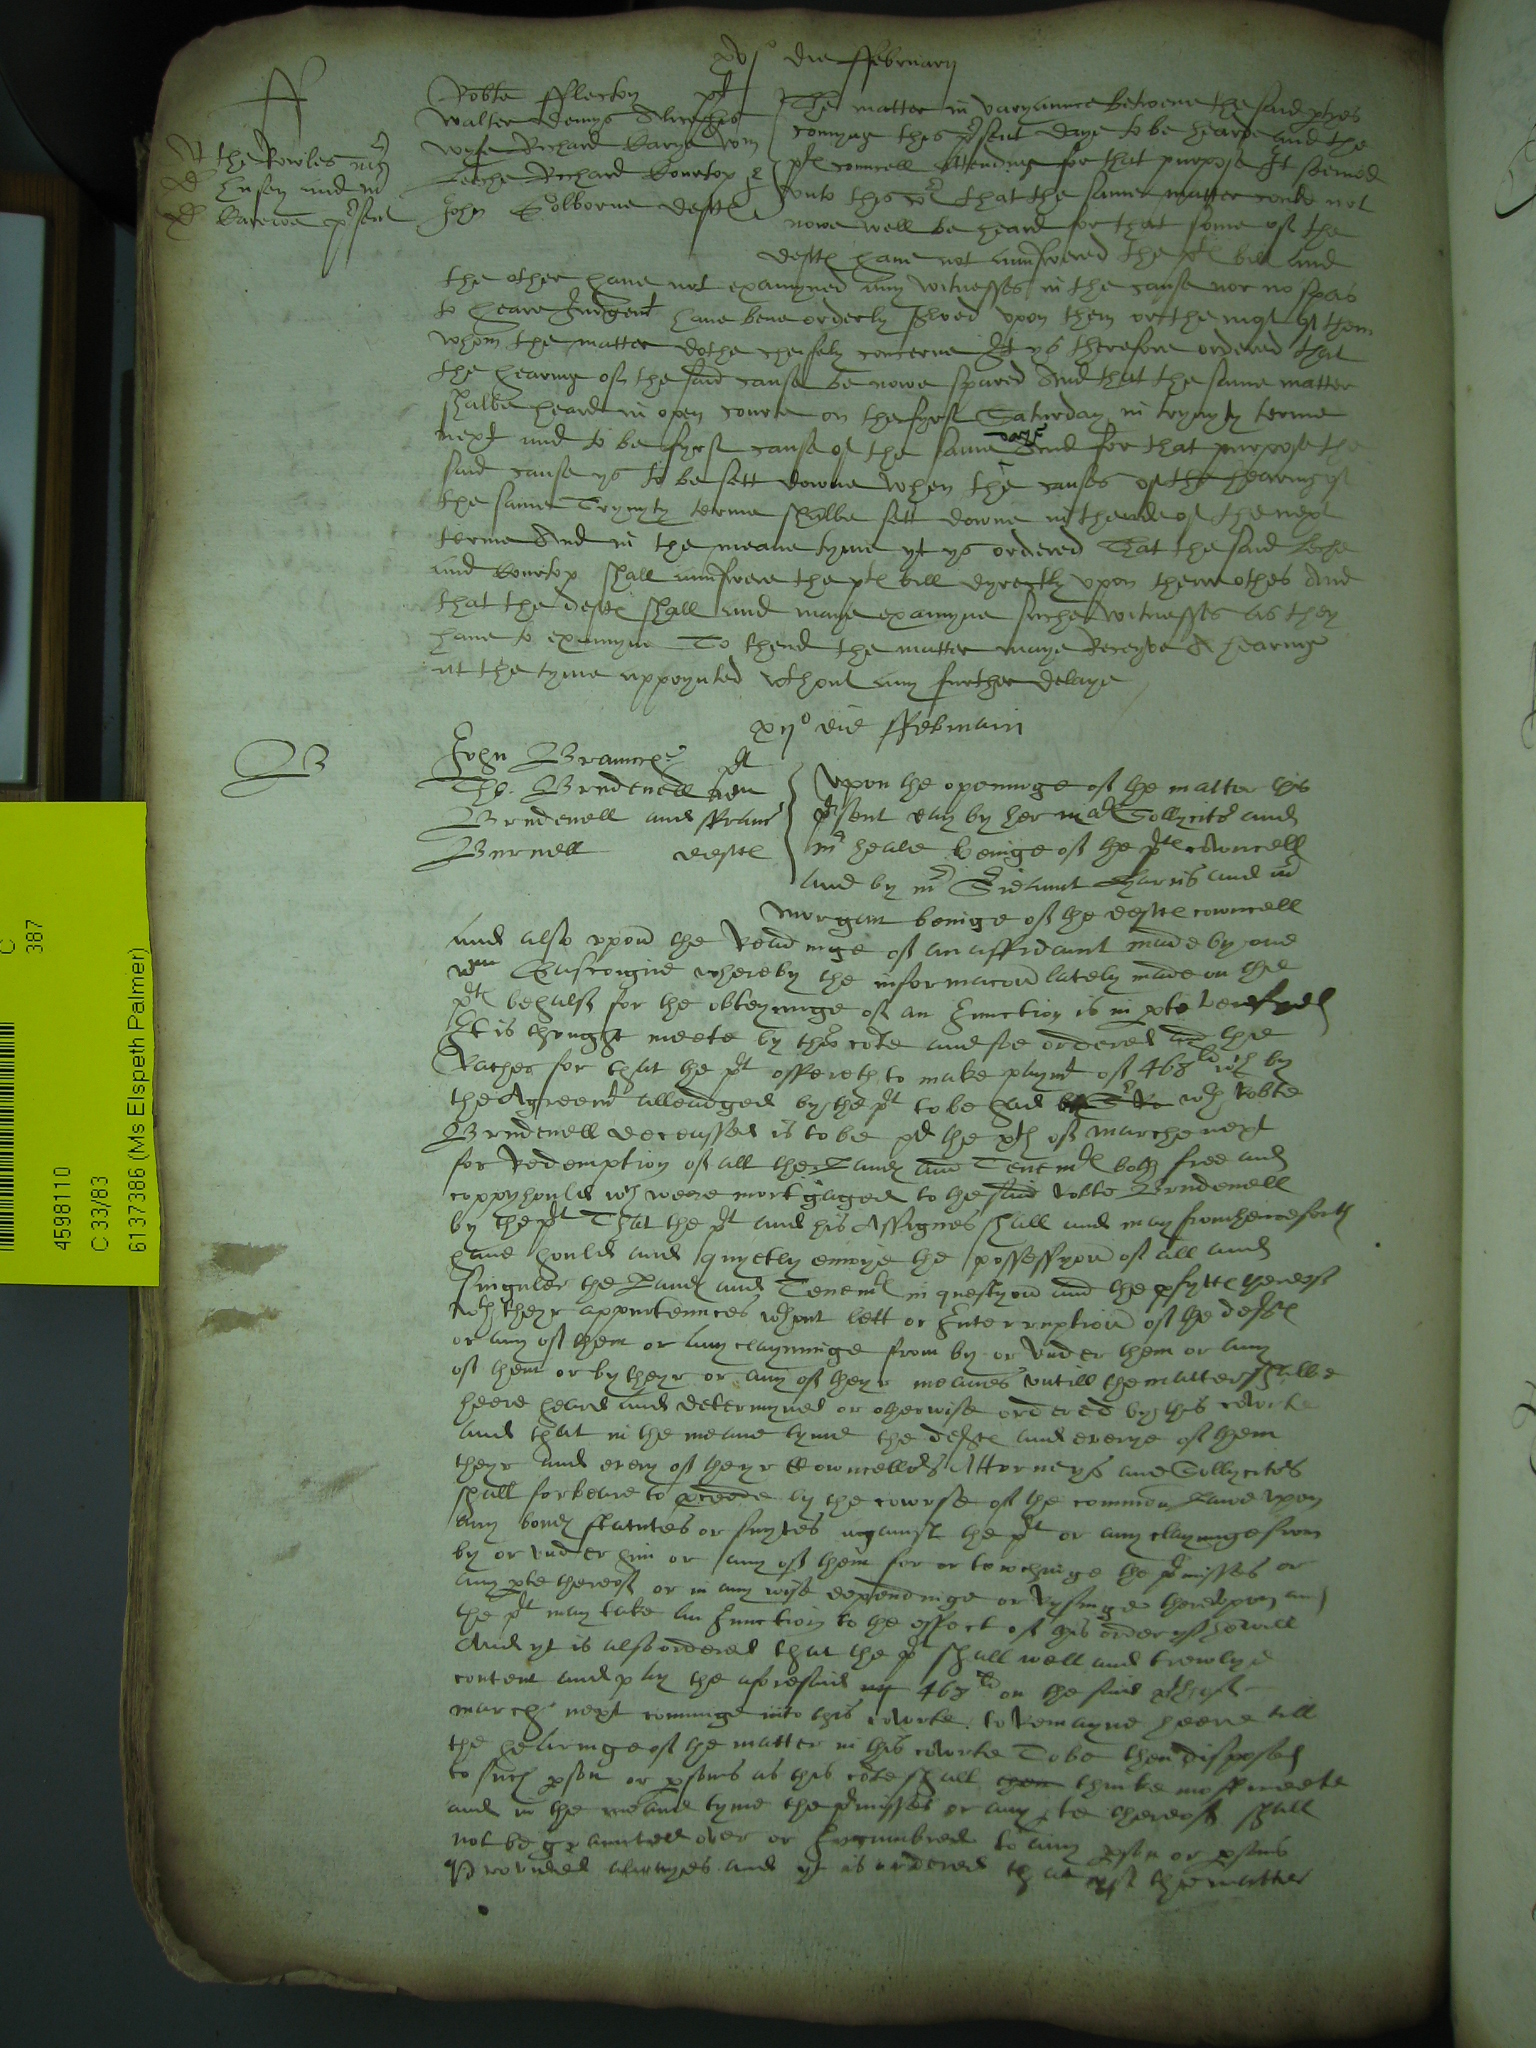 xvj° die ffebruarij
ff
Robte fflecton plt
Walter Dennys Alice his
wyfe Richard
Leeche Richard Kourtop &
John Golborne deftes
At the Rowles mr
dr Husey and m
dr Barkeve p'sent
The matter in varyaunce betwene the said ptyes
comyng this p'sent daye to be hearde and the
ptes councell attending for that purpose It seemed
vnto this Cort that the same matter coulde not
nowe well be heard for that some of the
deftes haue not aunswered the ptes bill and
the other haue not examyned any witnesses in the cause nor no spas
to heare Judgent haue bene orderly serued vpon them or the most of them
whom the matter dothe cheifely concerne It ys therefore ordered that
the hearing of the said cause be nowe spared And that the same matter
shalbe heard in open courte on the fyrst Saturday in trynyty terme
next and to be fyrst cause of the same daye And for that purpose the
said cause ys to be sett downe when the causes of the hearing of
the same Trynyty terme shalbe sett downe in thende of the next
terme And in the meane tyme yt ys ordered That the said Leche
and Kourtop shall aunswere the ptes bill dyrectly vpon there othes And
that the deftes shall and maye examyne suche witnesses as they
haue to examyne To thend the matter maye Receyve A hearing
at the tyme appoynted wthout any further delaye
xij° die ffebruarij
B
John Braunche plt
Tho. Brudenell Edm
Brudenell and ffrauncs
Burnell deftes
Vpon the openinge of the matter this
p'sent day by her mates Sollycitor and
mr heale beinge of the ptes cowncell
and by mr Sriaunt Harris and mr
morgan beinge of the deftes cowncell
and also vpon the Readinge of an affidauit made by one
Wm Gascoigne whereby the informacon lately made on the
ptes behalf for the obteyninge of an Iniunction is in pte verefyed
It is thought meete by this cote and soe ordered and the
Rather for that the plt offereth to make paymt of 468li wch by
the Agreemt alleadged by the plt to be had wth Robte
Brudenell deceassed is to be pd the xth of Marche next
for Redemption of all the Landes and Tenemtes both free and
coppyhould wch weere mortgaged to the said Robte Brudenell
by the plt That the plt and his Assignes shall and may from henceforth
haue hould and quyetly enioye the possessyon of all and
singuler the Landes and Tenemtes in questyon and the pfyttes thereof
wth theyr appurtennces wthout lett or Interruption of the deftes
or any of them or any clayminge from by or vnder them or any
of them or by theyr or any of theyr meanes vntill the matter shalbe
heere heard and determyned or otherwise ordered by this cowrte
and that in the meane tyme the deftes and everye of them
theyr and every of theyr Cowncellors Attorneys and Sollycitors
shall forbeare to pceede by the cowrse of the common Lawe vpon
any bondes statutes or suytes against the plt or any clayminge from
by or vnder him or any of them for or towchinge the p'misses or
any pte thereof or in any wise dependinge or Rysinge therevpon and
the plt may take an Iniunction to the effect of this order yf he will
And yt is also ordered that the plt shall well and trewly
content and pay the aforesaid 468li on the said xth of
march next comminge into this cowrte to Remayne heere till
the hearinge of the matter in this cowrte To be then disposed
to such pson or psons as this cote shall then thinke most meete
and in the meane tyme the p'misses or any pte thereof shall
not be graunted over or Incumbred to any pson or psons
Provided alwayes and yt is ordered that yf the matter
C
387
4598110
C 33/83
6137386 (Ms Elspeth Palmer)